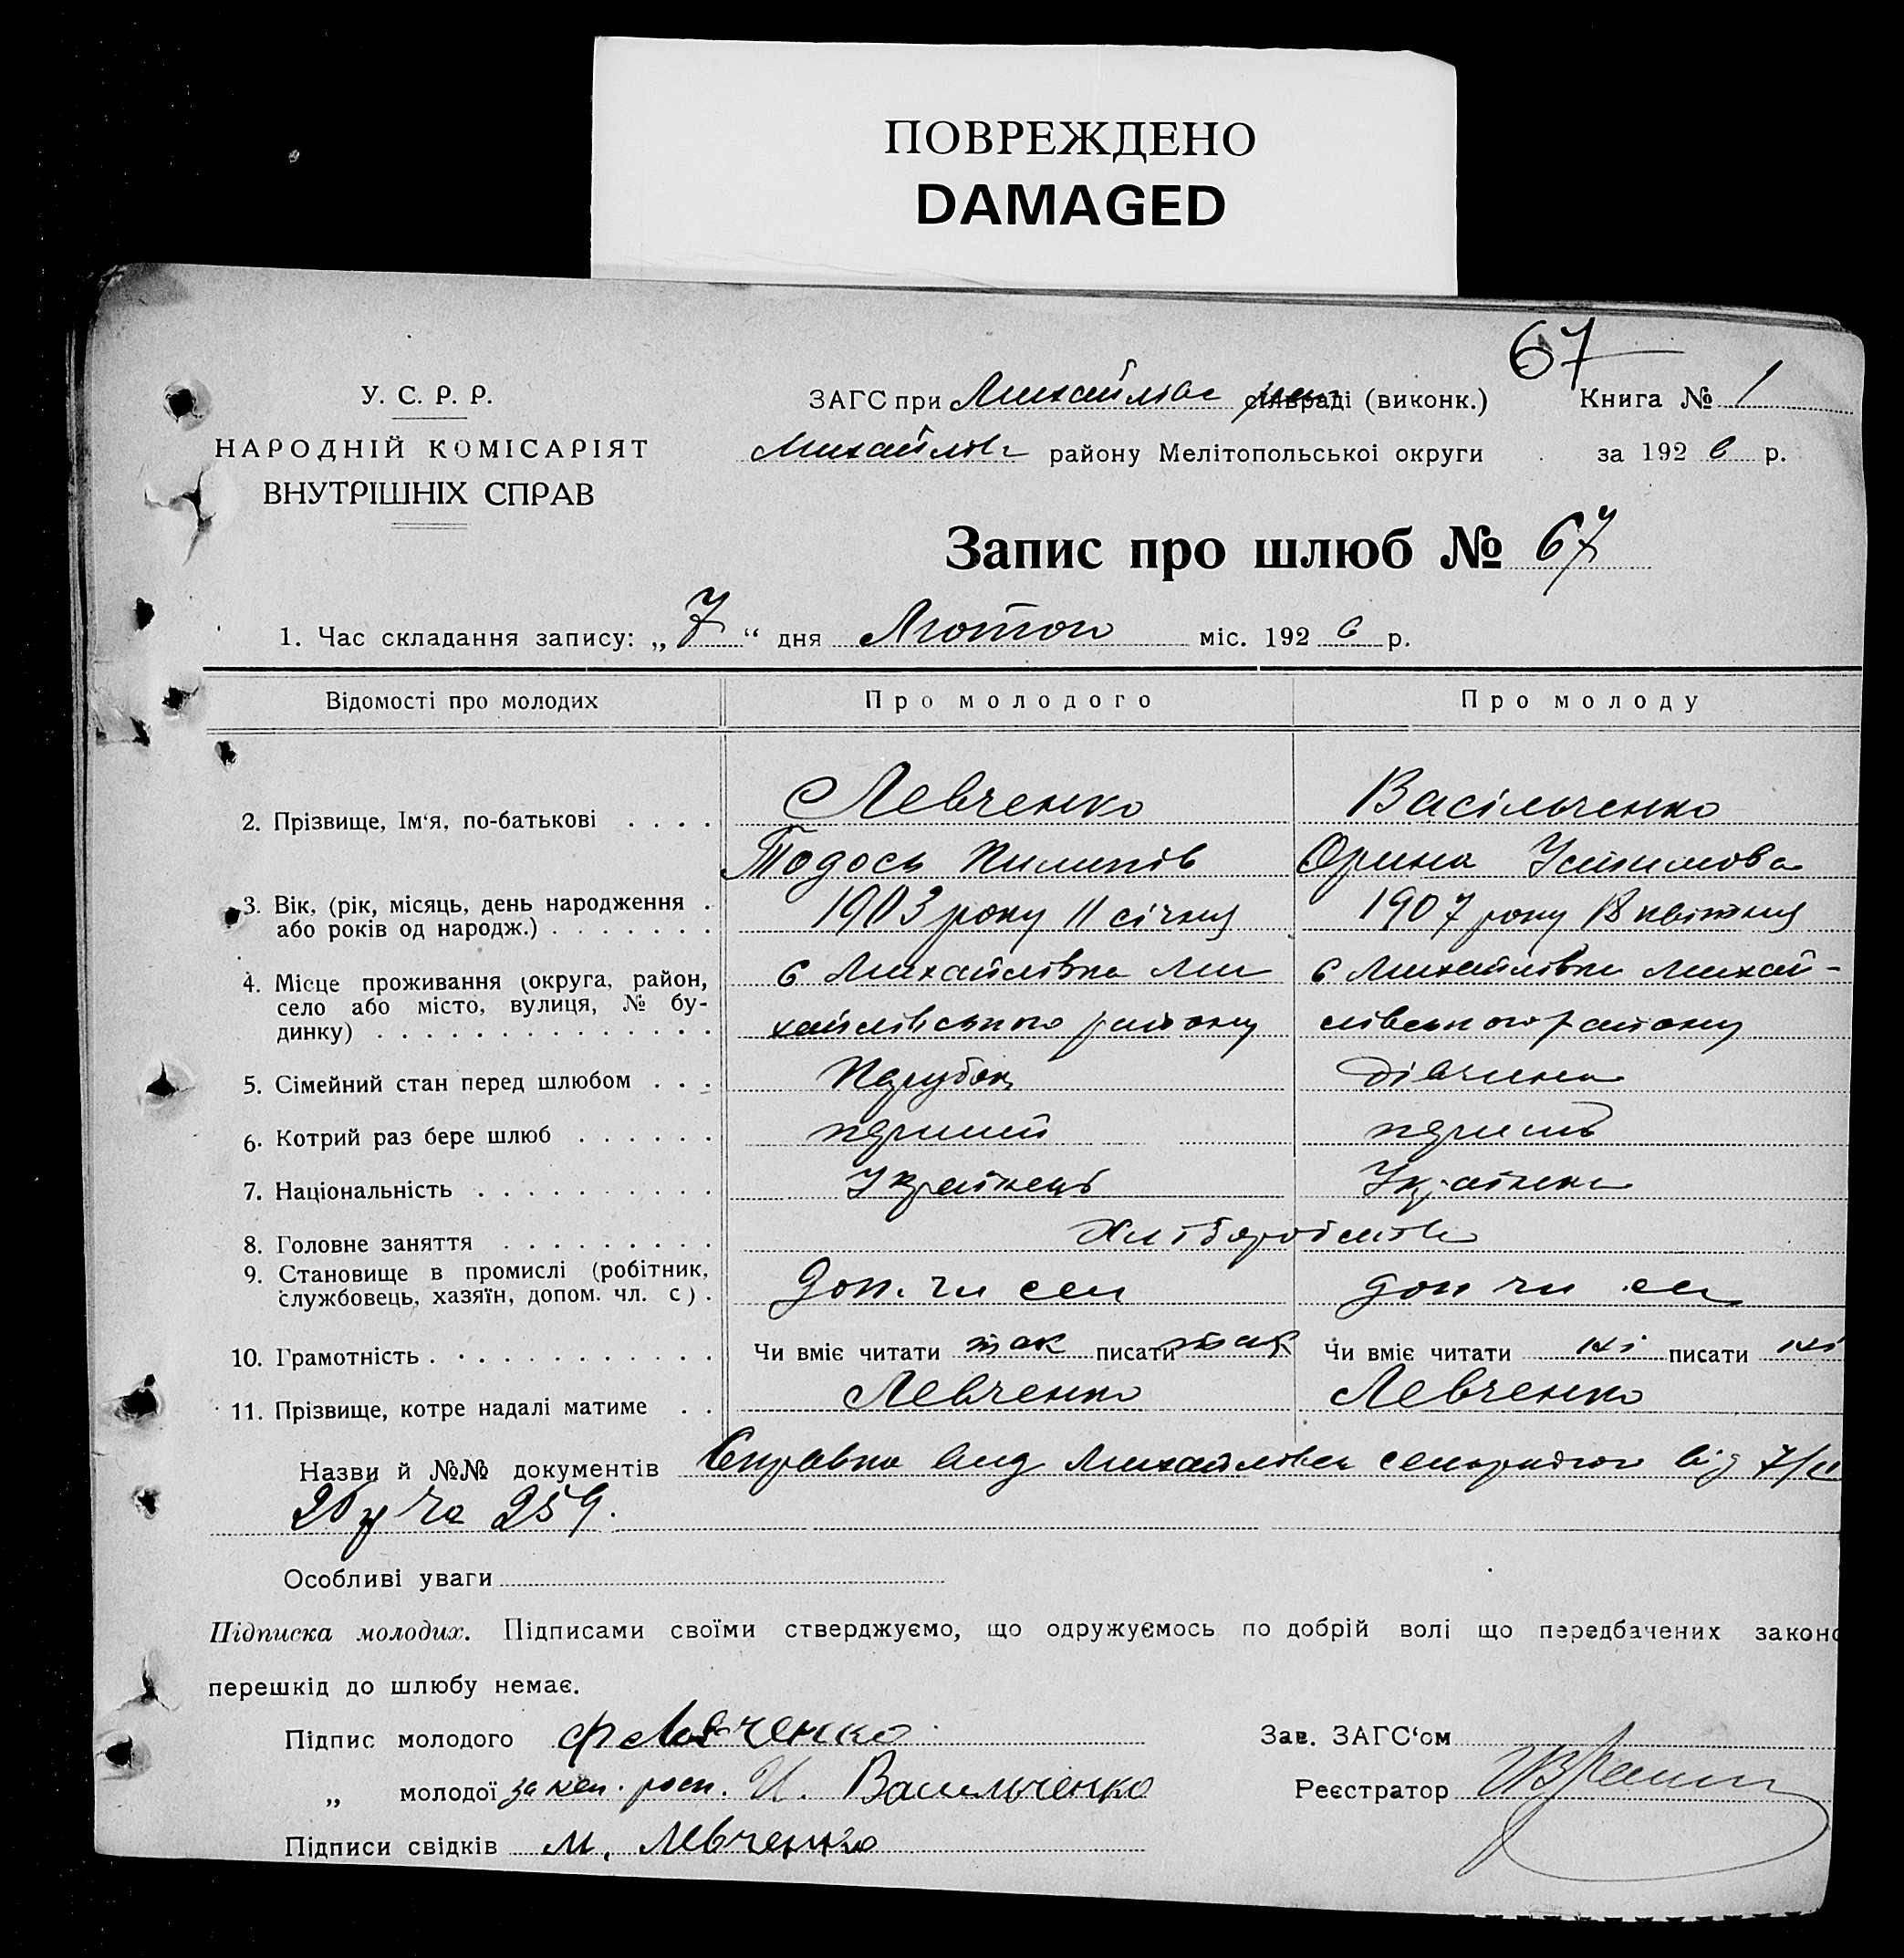 ПОВРЕЖДЕНО
DAMAGED
67
У. С. Р. Р.
НАРОДНІЙ КОМІСАРІЯТ
ВНУТРІШНІХ СПРАВ
ЗАГС при Михайлівс сільраді (виконк.)
Книга № 1
Михайлівс району Мелітопольскої округи за 192 6 р.
Запис про шлюб № 67
1. Час складання запису: „ 7 “ дня Лютого міс. 192 6 р.
Відомості про молодих Про молодого Про молоду
Левченко Васільченко
2. Прізвище, Ім‘я, по-батькові . . . .
Тодось Пилипів Орина Устимова
3. Вік, (рік, місяць, день народження . 1903 року 11 січня 1907 року 18 квітня
або років од народж.) . . . . . . .
4. Місце проживання (округа, район, с Михайлівка Ми с Михайлівка Михай-
село або місто, вулиця, № бу-
динку) . . . . . . . . . . . . . . хайлівського району лівського району
5. Сімейний стан перед шлюбом . . . Парубок дівчина
6. Котрий раз бере шлюб . . . . . . перший
7. Національність . . . . . . . . . . Українець Українка
8. Головне заняття . . . . . . . . . Хліборобство
9. Становище в промислі (робітник,
службовець, хазяїн, допом. чл. с) . доп. чл сем доп чл сем
10. Грамотність . . . . . . . . . . . . Чи вміє читати так писати так Чи вміє читати ні писати ні
11. Прізвище, котре надалі матиме . . Левченко Левченко
Назви й №№ документів Справка від 7/II
26 р № 259.
Особливі уваги
Підписка молодих. Підписами своїми стверджуємо, що одружуємось по добрій волі що передбачених законо
перешкід до шлюбу немає.
Підпис молодого Ф Левченко Зав. ЗАГС‘ом
„ молодої за неп. росп. И. Васильченко Реєстратор
Підписи свідків М. Левченко